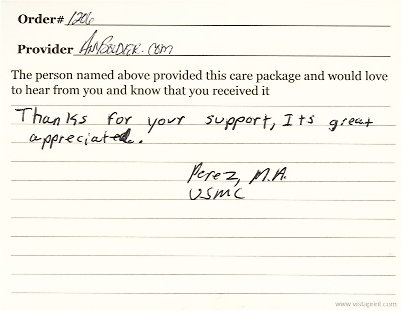 Order# 1206
Provider AnySoldier.com
The person named above provided this care package and would love
to hear from you and know that you received it
Thanks for your support, Its great
appreciated.
Perez, M.A.
USMC
www.vistaprint.com